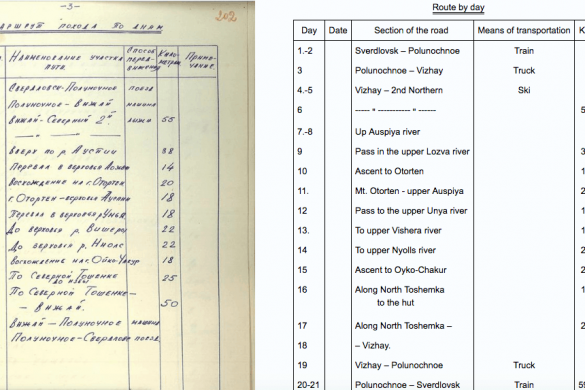 -3-
202
АРШРУТ ПОХОДА ПО ДНЯМ
Наименование участка пути. Способ передвижения Километраж Примечание.
Свердловск-Полуночное поезд
Полуночное - Вижай машина
Вижай-Северный 2й. лыжи 55
— " — " —
Вверх по р. Ауспии 38
Перевал в верховья Лозьвы 14
Восхождение на г. Отортен 20
г. Отортен-верховья Ауспии 18
Перевал в верховья р. Унья 18
До верховья р. Вишера 22
До верховья р. Ниолс 22
Восхождение на г. Ойко-Чакур 18
По Северной Тошемке 25
до избы
По Северной Тошемке - 50
- Вижай.
Вижай - Полуночное машина
Полуночное-Свердловск поезд
Route by day
Day Date Section of the road Means of transportation K
1.-2 Sverdlovsk – Polunochnoe Train
3 Polunochnoe – Vizhay Truck
4.-5 Vizhay – 2nd Northern Ski
6 ----- " ----------- " ------ 5
7.-8 Up Auspiya river
9 Pass in the upper Lozva river 3
10 Ascent to Otorten 1
11. Mt. Otorten - upper Auspiya 2
12 Pass to the upper Unya river 1
13. To upper Vishera river 1
14 To upper Nyolls river 2
15 Ascent to Oyko-Chakur 2
16 Along North Toshemka 1
to the hut
17 Along North Toshemka – 2
18 – Vizhay.
19 Vizhay – Polunochnoe Truck
20-21 Polunochnoe – Sverdlovsk Train